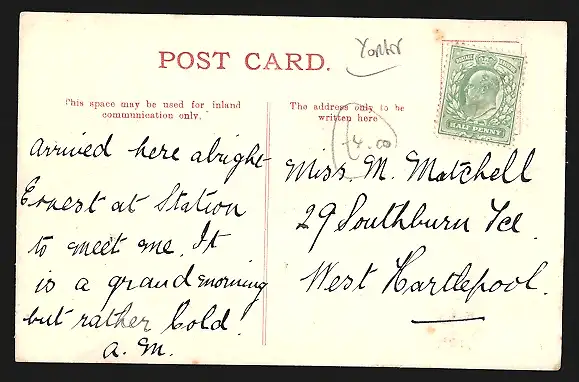 Yorks
POST CARD.
This space may be used for inland
communication only.
The address only to be
written here
4.00
HALF PENNY
Arrived here alright
Ernest at Station
to meet me. It
is a grand morning
but rather Cold.
A. M.
Miss M. Matchell
29 Southburn Tce.
West Hartlepool.